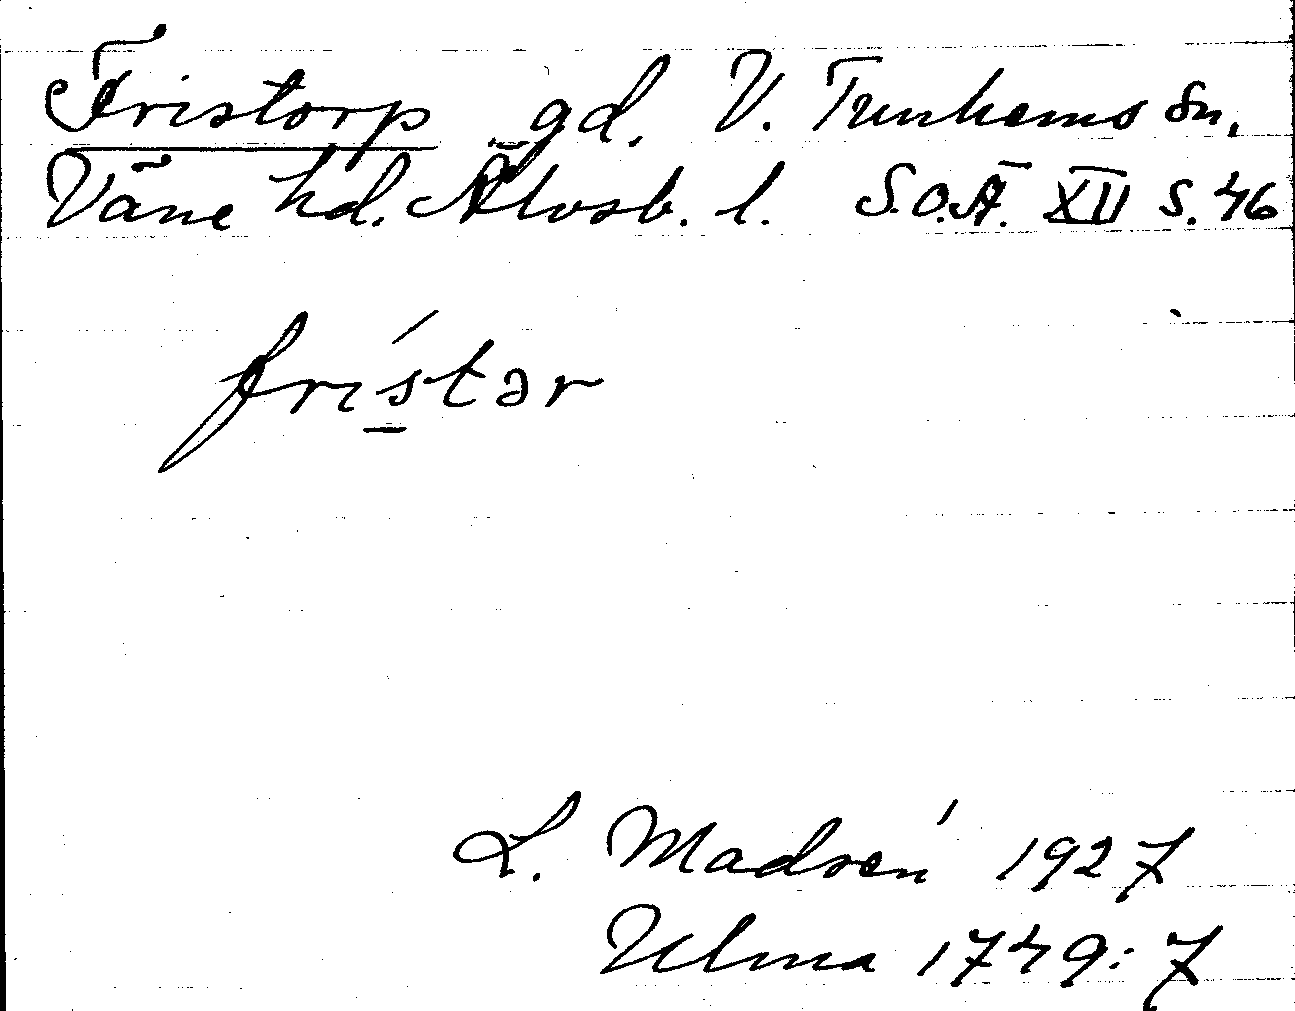 Fristorp gd. V. Tunhems sn,
Väne hd. Älvsb. l. S.O.Ä. XII s. 46
frís̲tər
L. Madsén 1927
Ulma 1749:7